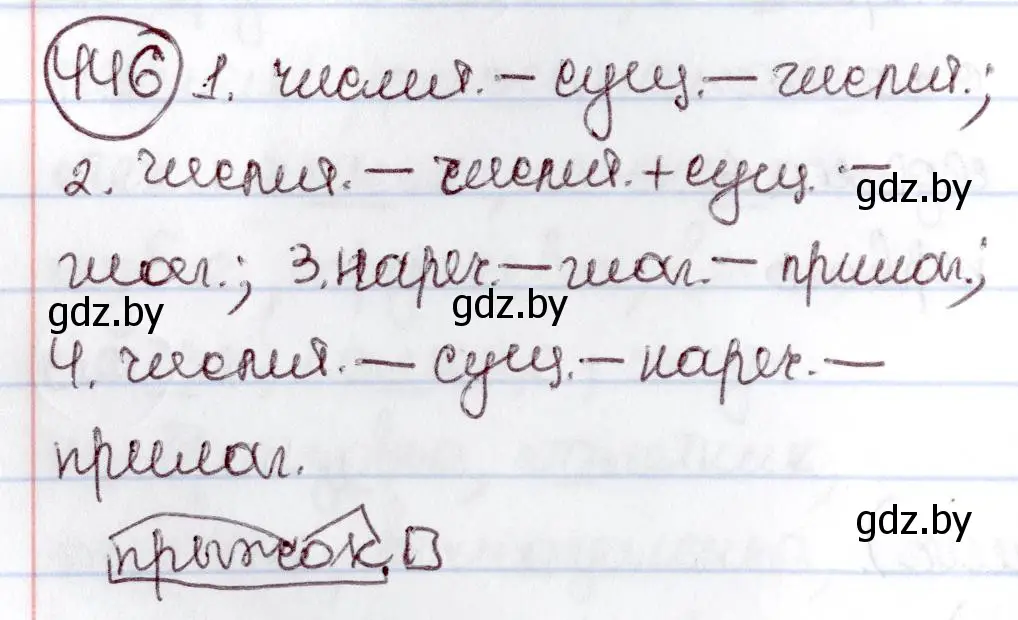 446 1. числит. – сущ. – числит.;
2. числит. – числит. + сущ. –
gdz.by
глаг.; 3. нареч. – глаг. – прилаг.;
gdz.by gdz.by
4. числит. – сущ. – нареч. –
прилаг.
gdz.by
прыжок